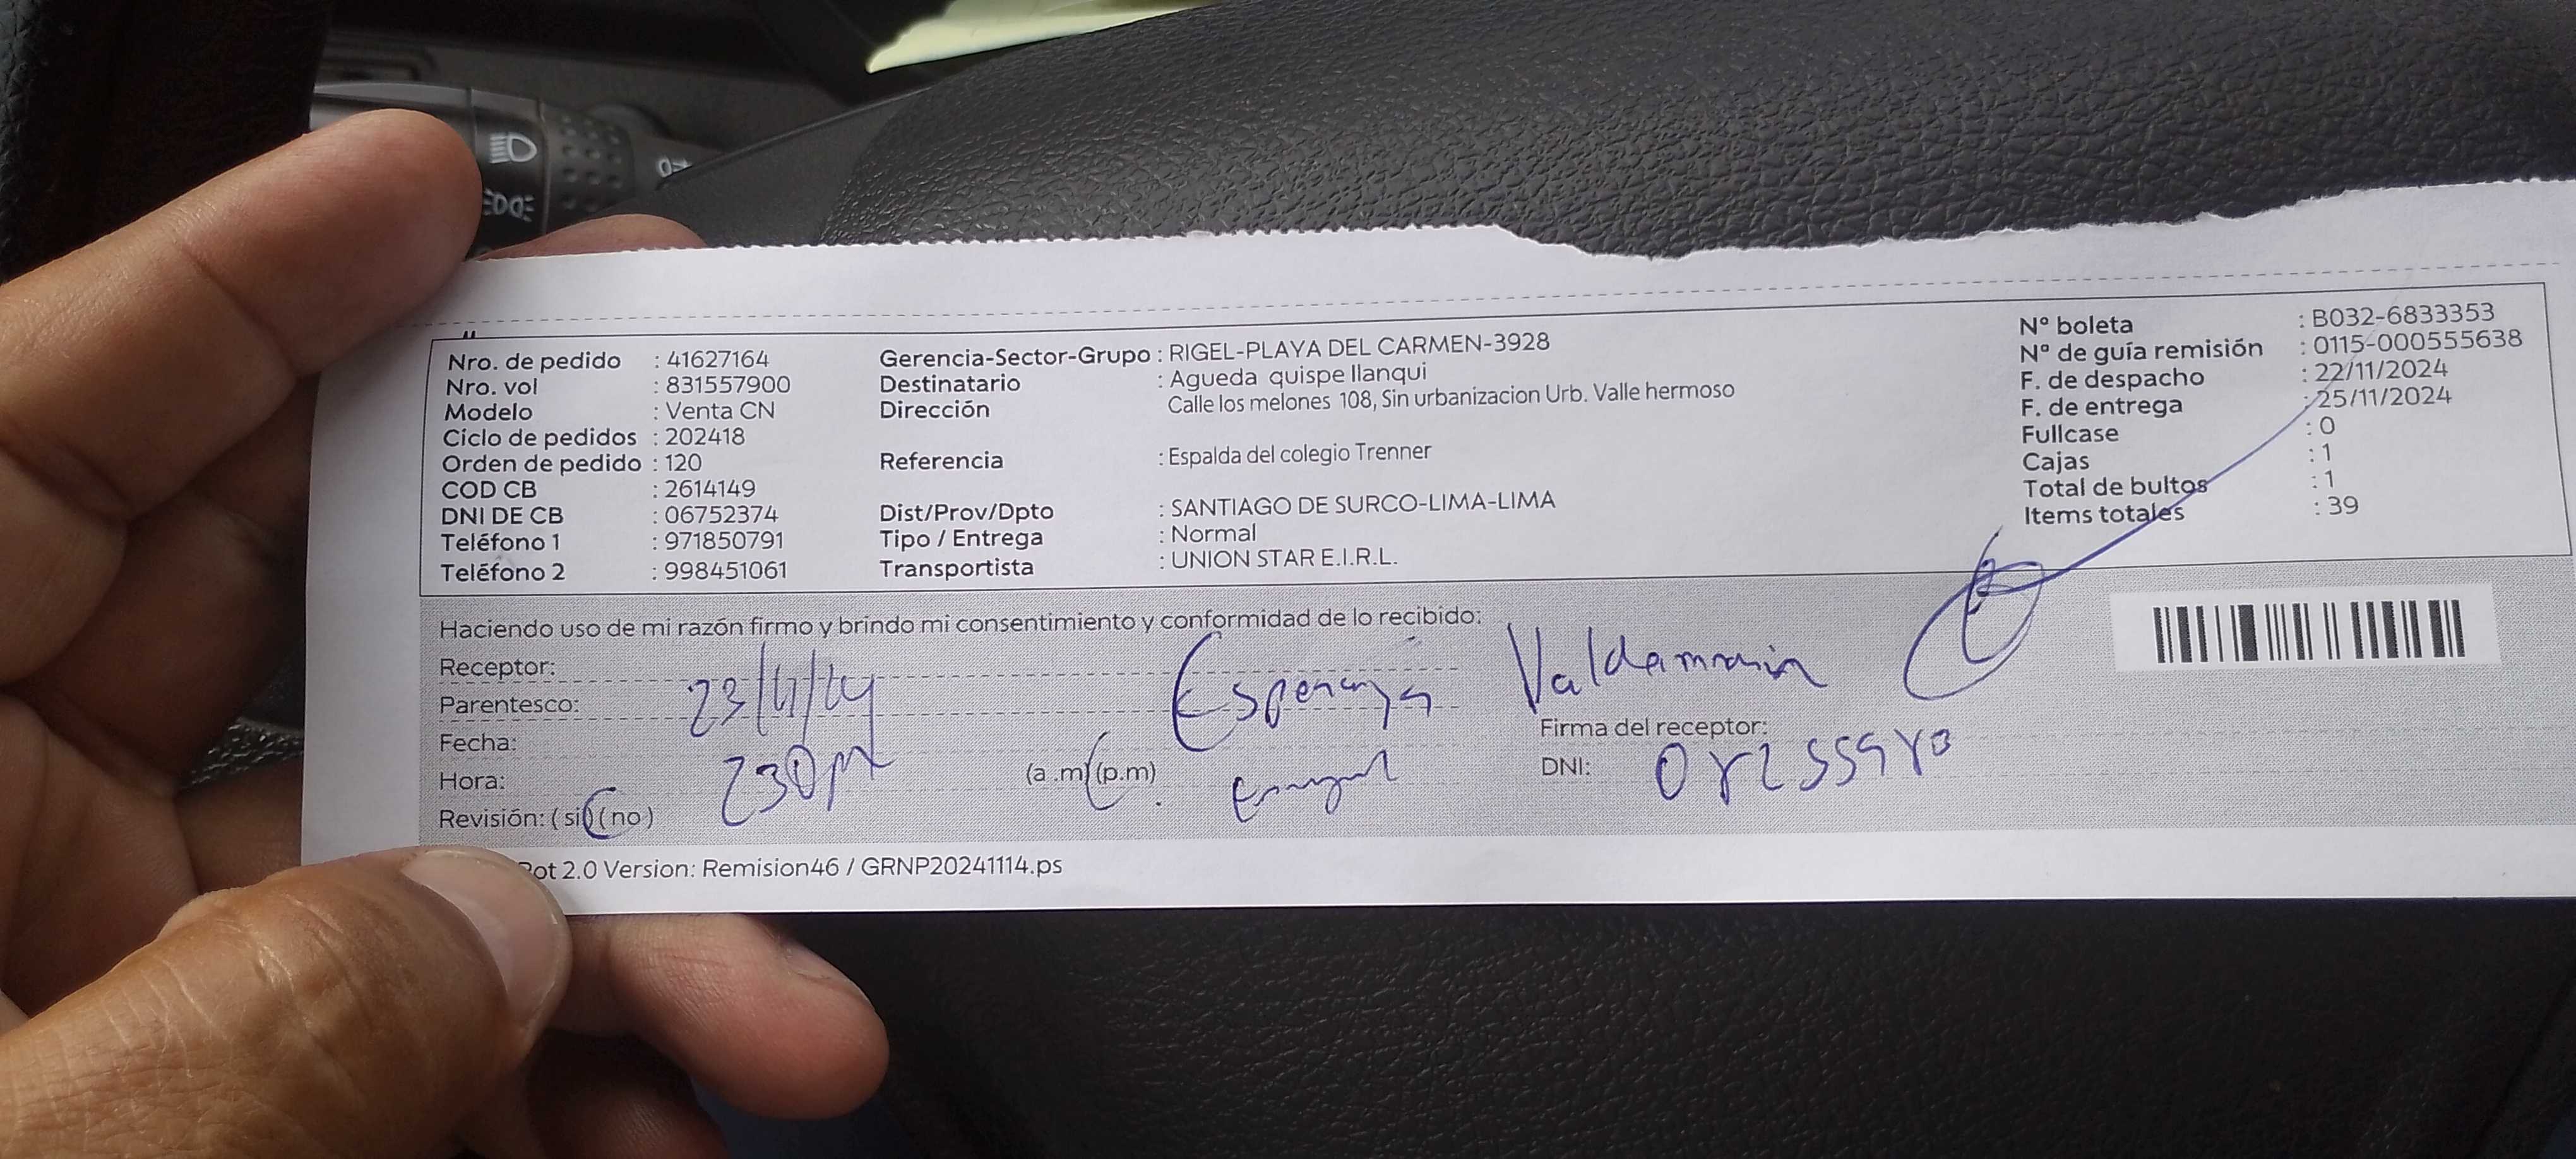 Nro. de pedido : 41627164
Nro. vol : 831557900
Modelo : Venta CN
Ciclo de pedidos : 202418
Orden de pedido : 120
COD CB : 2614149
DNI DE CB : 06752374
Teléfono 1 : 971850791
Teléfono 2 : 998451061
Gerencia-Sector-Grupo : RIGEL-PLAYA DEL CARMEN-3928
Destinatario : Agueda quispe llanqui
Dirección Calle los melones 108, Sin urbanizacion Urb. Valle hermoso
Referencia : Espalda del colegio Trenner
Dist/Prov/Dpto : SANTIAGO DE SURCO-LIMA-LIMA
Tipo / Entrega : Normal
Transportista : UNION STAR E.I.R.L.
Nº boleta : B032-6833353
Nº de guía remisión : 0115-000555638
F. de despacho : 22/11/2024
F. de entrega : 25/11/2024
Fullcase : 0
Cajas : 1
Total de bultos : 1
Items totales : 39
Haciendo uso de mi razón firmo y brindo mi consentimiento y conformidad de lo recibido:
Receptor:
Esperanza Valdemarin
Parentesco:
23/11/24
Fecha:
Firma del receptor:
Hora: 230pm (a .m) (p.m)
DNI:
Revisión: ( si) (no)
ot 2.0 Version: Remision46 / GRNP20241114.ps